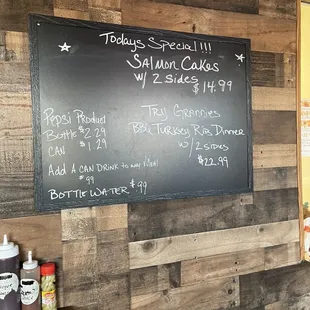 Todays Special!!!
Salmon Cakes
w/ 2 sides $14.49
Pepsi Product
Bottle $2.29
CAN $1.29
Add A CAN Drink to any Meal
$.99
Bottle Water $.99
Try Grannies
BBQ Turkey Rib Dinner
w/ 2 sides
$22.99